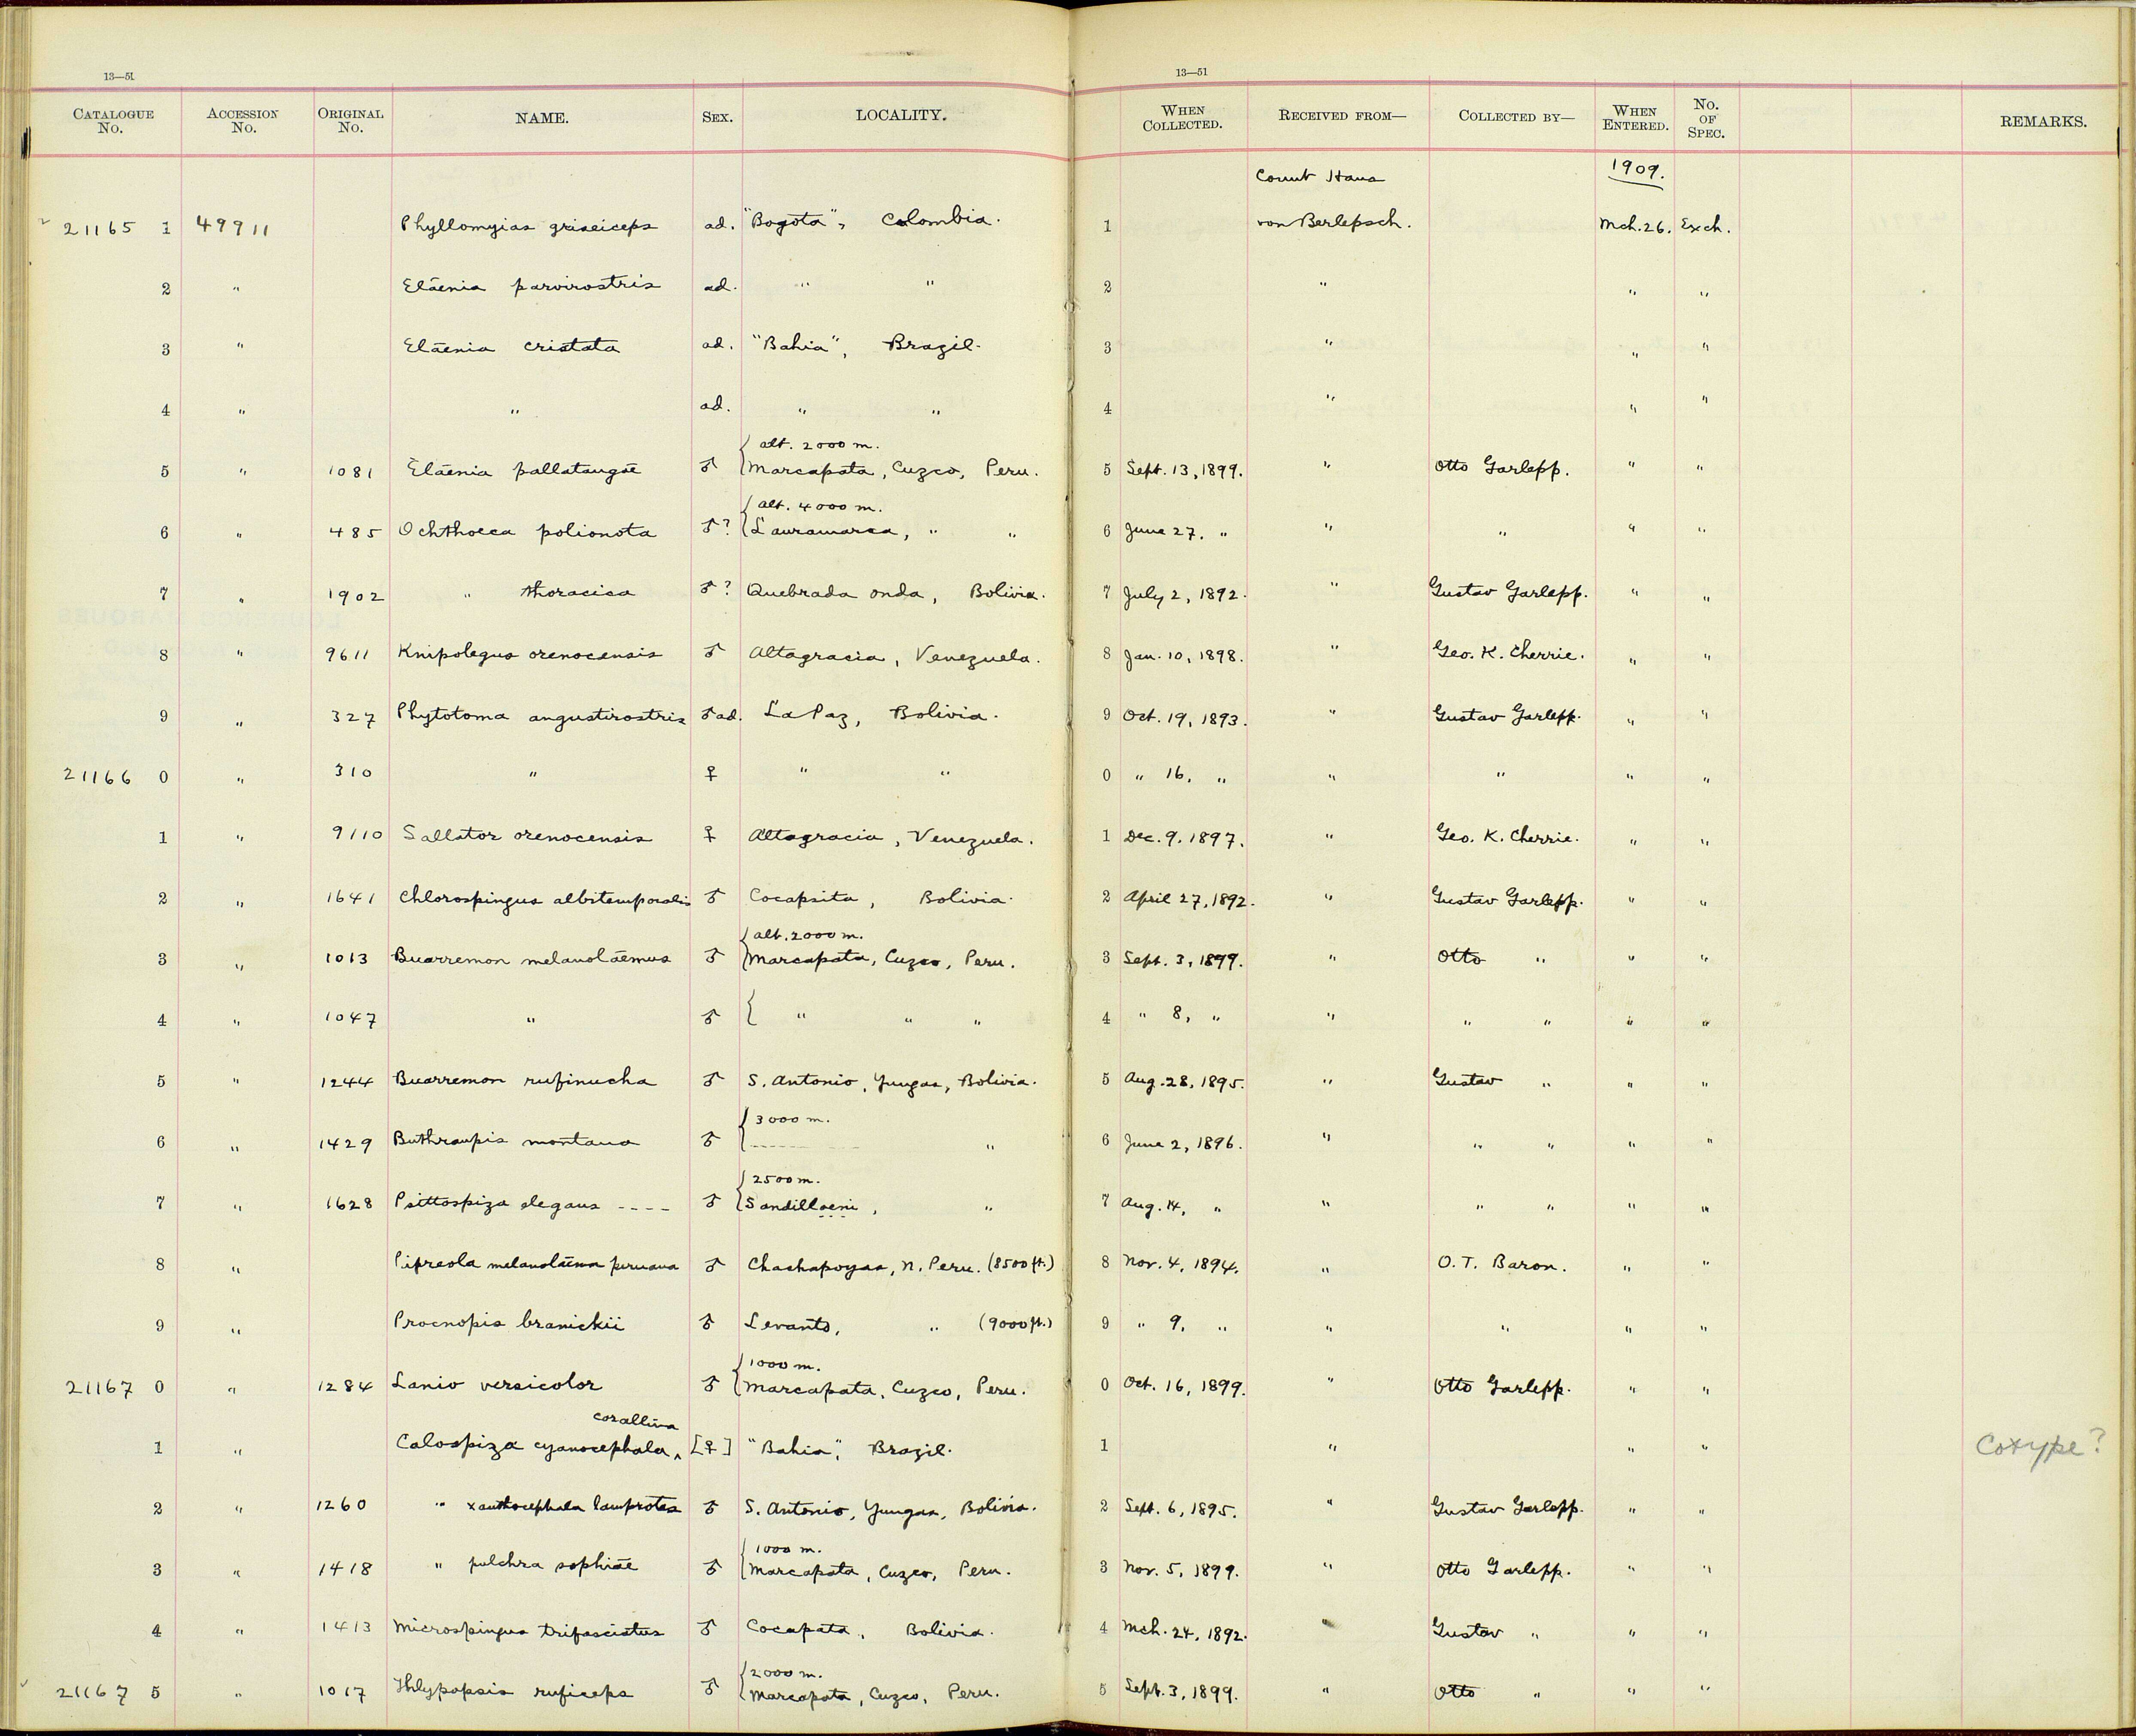 13—51 13—51
CATALOGUE No. ACCESSION No. ORIGINAL No. NAME. SEX. LOCALITY. WHEN COLLECTED. RECEIVED FROM— COLLECTED BY— WHEN ENTERED. No. OF SPEC. REMARKS.
Count Hans 1909.
21165 1 49911 Phyllomyias griseiceps ad. "Bogota", Colombia. 1 von Berlepsch. Mch. 26. Exch.
2 " Elaenia parvirostris ad. " " 2 " " "
3 " Elaenia cristata ad. "Bahia", Brazil. 3 " " "
4 " " ad. " " 4 " " "
alt. 2000 m.
5 " 1081 Elaenia pallatangae ♂ Marcapata, Cuzco, Peru. 5 Sept. 13, 1899. " Otto Garlepp. " "
alt. 4000 m.
6 " 485 Ochthoeca polionota ♂? Lauramarca, " " 6 June 27. " " " " "
7 " 1902 " thoracica ♂? Quebrada onda, Bolivia. 7 July 2, 1892. " Gustav Garlepp. " "
8 " 9611 Knipolegus orenocensis ♂ Altagracia, Venezuela. 8 Jan. 10, 1898. " Geo. K. Cherrie. " "
9 " 327 Phytotoma angustirostris ♂ad. La Paz, Bolivia. 9 Oct. 19, 1893. " Gustav Garlepp. " "
21166 0 " 310 " ♀ " " 0 " 16. " " " " "
1 " 9110 Saltator orenocensis ♀ Altagracia, Venezuela. 1 Dec. 9, 1897. " Geo. K. Cherrie. " "
2 " 1641 Chlorospingus albitemporalis ♂ Cocapata, Bolivia. 2 April 27, 1892. " Gustav Garlepp. " "
alt. 2000 m.
3 " 1013 Buarremon melanolaemus ♂ Marcapata, Cuzco, Peru. 3 Sept. 3, 1899. " Otto " " "
4 " 1047 " ♂ " " " 4 " 8, " " " " " "
5 " 1244 Buarremon rufinucha ♂ S. Antonio, Yungas, Bolivia. 5 Aug. 28, 1895. " Gustav " " "
3000 m.
6 " 1429 Buthraupis montana ♂ ------ " 6 June 2, 1896. " " " " "
2500 m.
7 " 1628 Psittospiza elegans ---- ♂ Sandillani, " 7 Aug. 14, " " " " " "
8 " Pipreola melanolaema peruana ♂ Chachapoyas, N. Peru. (8500 ft.) 8 Nov. 4, 1894. " O. T. Baron. " "
9 " Procnopis branickii ♂ Levanto, " (9000 ft.) 9 " 9, " " " " "
1000 m.
21167 0 " 1284 Lanio versicolor ♂ Marcapata, Cuzco, Peru. 0 Oct. 16, 1899. " Otto Garlepp. " "
corallina
1 " Calospiza cyanocephala ‸ [♀] "Bahia", Brazil. 1 " " " Cotype?
2 " 1260 " xanthocephala lamprotes ♂ S. Antonio, Yungas, Bolivia. 2 Sept. 6, 1895. " Gustav Garlepp. " "
1000 m.
3 " 1418 " pulchra sophiae ♂ Marcapata, Cuzco, Peru. 3 Nov. 5, 1899. " Otto Garlepp. " "
4 " 1413 Microspingus trifasciatus ♂ Cocapata, Bolivia. 4 Mch. 24, 1892. " Gustav " " "
2000 m.
21167 5 " 1017 Thlypopsis ruficeps ♂ Marcapata, Cuzco, Peru. 5 Sept. 3, 1899. " Otto " " "